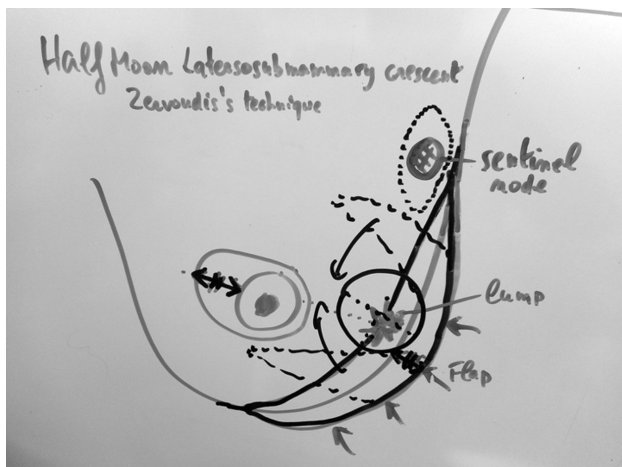 Half Moon Latersosubmammary crescent
Zervoudis's technique
sentinel
node
lump
Flap